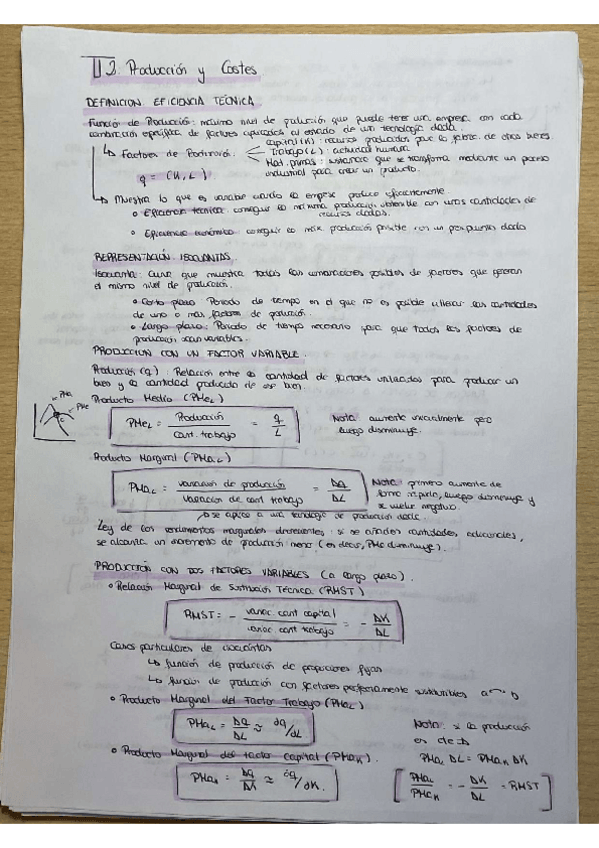 T2. Producción y Costes
DEFINICION EFICIENCIA TÉCNICA
Función de Producción: máximo nivel de producción que puede tener una empresa con cada
combinación específica de factores aplicados al estado de una tecnología dada.
↳ Factores de Producción
Capital (K): recursos producidos para la fabric. de otros bienes.
Trabajo (L): actividad humana
Mat. primas: sustancia que se transforma mediante un proceso
industrial para crear un producto.
q = (K, L)
↳ Muestra lo que es variable cuando la empresa produce eficientemente.
• Eficiencia técnica: conseguir la máxima producción obtenible con unas cantidades de
recursos dadas.
• Eficiencia económica: conseguir la máx. producción posible con un presupuesto dado
REPRESENTACIÓN ISOCUANTAS.
Isocuanta: curva que muestra todas las combinaciones posibles de factores que generan
el mismo nivel de producción.
• Corto plazo: Periodo de tiempo en el que no es posible alterar las cantidades
de uno o más factores de producción.
• Largo plazo: Periodo de tiempo necesario para que todos los factores de
producción sean variables.
PRODUCCION CON UN FACTOR VARIABLE.
Producción (q): Relación entre la cantidad de factores utilizados para producir un
bien y la cantidad producida de ese bien.
Producto Medio (PMeL)
PMeL = Producción / cant. trabajo = q / L
Nota: aumenta inicialmente pero
luego disminuye.
Producto Marginal (PMaL)
PMaL = variación de producción / variación de cant trabajo = ΔQ / ΔL
Nota: primero aumenta de
forma rápida, luego disminuye y
se vuelve negativo.
↳ se aplica a una tecnología de producción dada.
Ley de los rendimientos marginales decrecientes: si se añaden cantidades adicionales,
se alcanza un incremento de producción menor (es decir, PMa disminuye).
PRODUCCIÓN CON DOS FACTORES VARIABLES (a largo plazo).
• Relación Marginal de Sustitución Técnica (RMST)
RMST = - variac. cant capital / variac. cant trabajo = - ΔK / ΔL
Casos particulares de isocuantas
↳ función de producción de proporciones fijas
↳ función de producción con factores perfectamente sustituibles
• Producto Marginal del Factor Trabajo (PMaL)
PMaL = ΔQ / ΔL ≈ dq/dL
Nota: si la producción
es cte ⇒
• Producto Marginal del factor Capital (PMaK).
PMaL ΔL = PMaK ΔK
PMaK = ΔQ / ΔK ≈ dq/dK.
[PMaL / PMaK = - ΔK / ΔL = RMST]